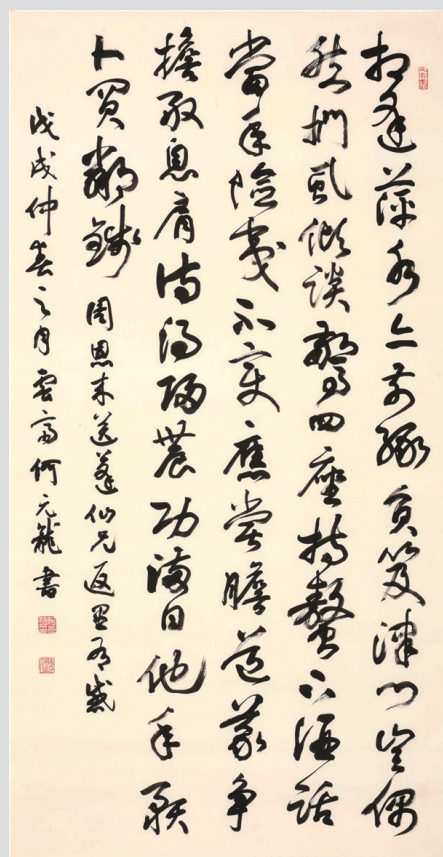 相逢萍水亦前緣負笈津門豈偶
然捫虱傾談驚四座持螯下酒話
當年險夷不變應嘗膽道義争
擔敢息肩待得歸農功滿日他年預
卜買鄰錢 周恩来送蓬仙兄返里有感
戊戌仲春之月雲齋何元龍書